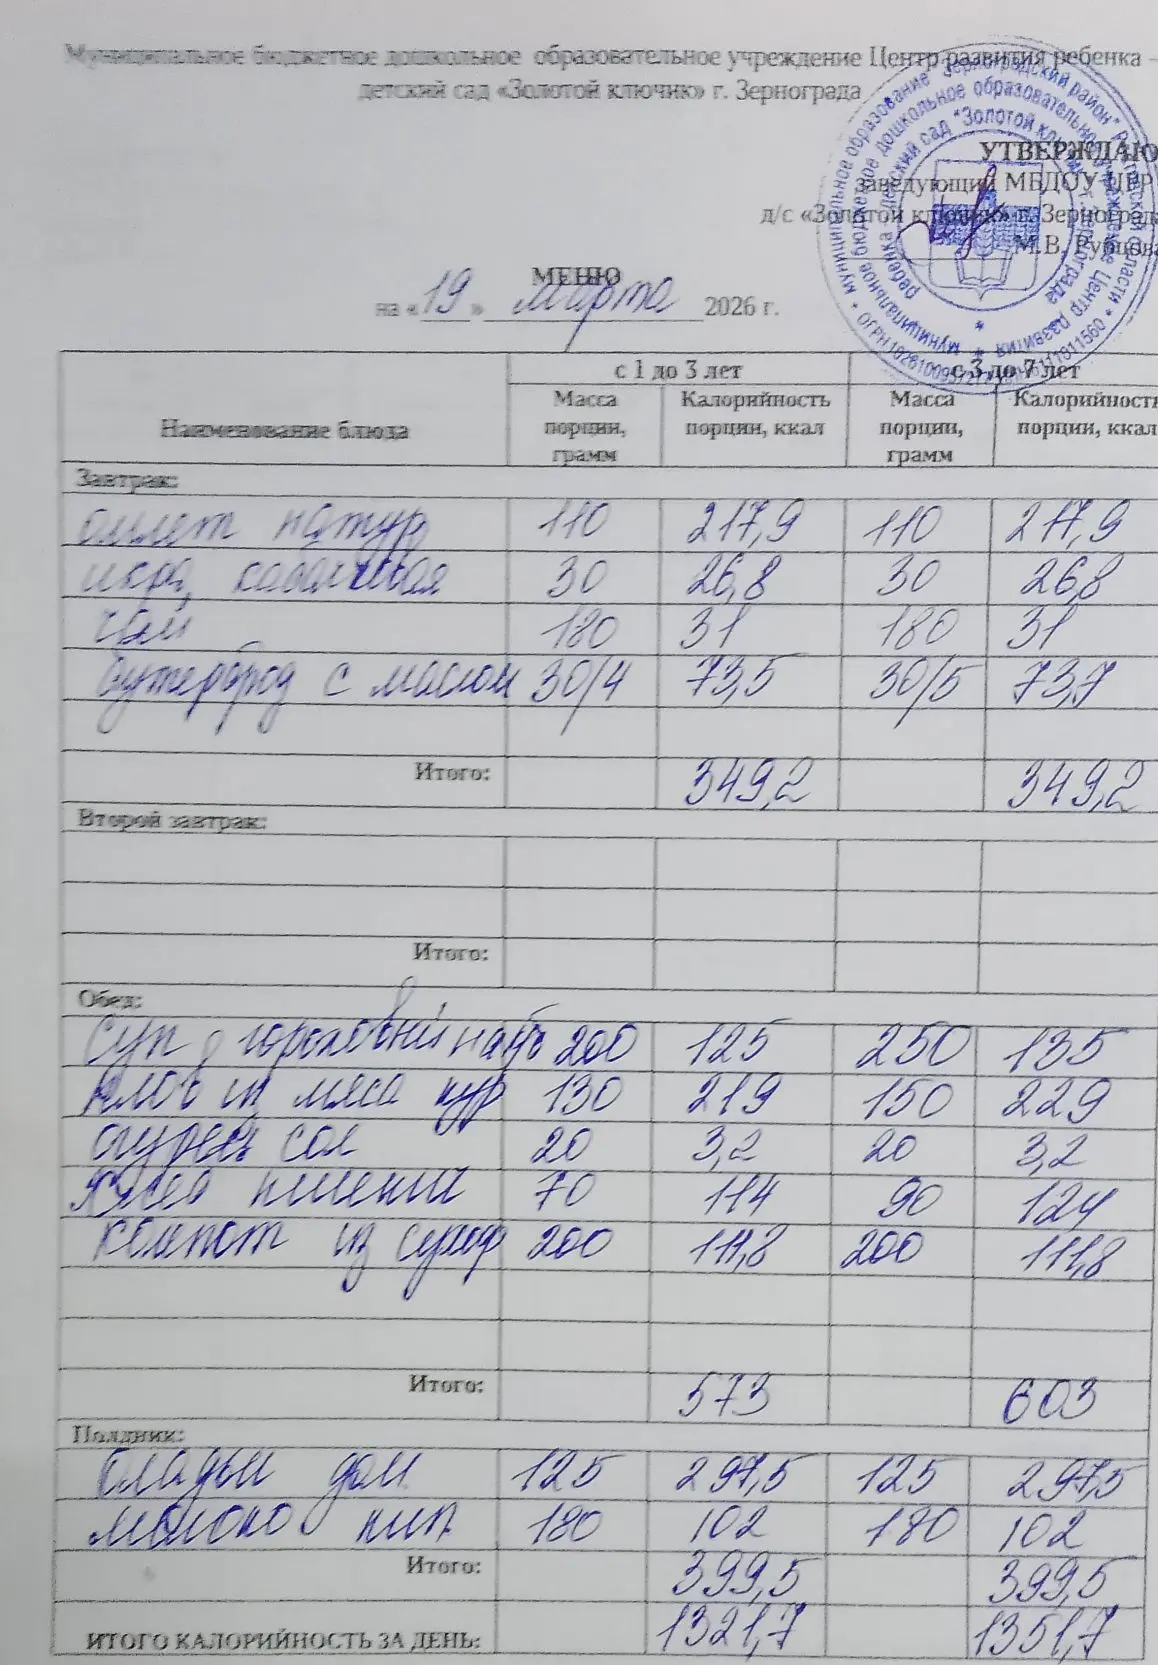 Муниципальное бюджетное дошкольное образовательное учреждение Центр развития ребенка –
детский сад «Золотой ключик» г. Зернограда
УТВЕРЖДАЮ
заведующий МБДОУ ЦРР
д/с «Золотой ключик» г. Зернограда
М.В. Рубцова
МЕНЮ
на «19» марта 2026 г.
с 1 до 3 лет с 3 до 7 лет
Наименование блюда Масса порции, грамм Калорийность порции, ккал Масса порции, грамм Калорийность порции, ккал
Завтрак:
омлет натур 110 217,9 110 217,9
икра кабачковая 30 26,8 30 26,8
чай 180 31 180 31
бутерброд с маслом 30/4 73,5 30/5 73,7
Итого: 349,2 349,2
Второй завтрак:
Итого:
Обед:
Суп гороховый 200 125 250 135
мяса кур 130 219 150 229
огурец сол 20 3,2 20 3,2
70 114 90 124
компот из сухоф 200 111,8 200 111,8
Итого: 573 603
Полдник:
оладьи дом 125 297,5 125 297,5
молоко кип 180 102 180 102
Итого: 399,5 399,5
ИТОГО КАЛОРИЙНОСТЬ ЗА ДЕНЬ: 1321,7 1351,7